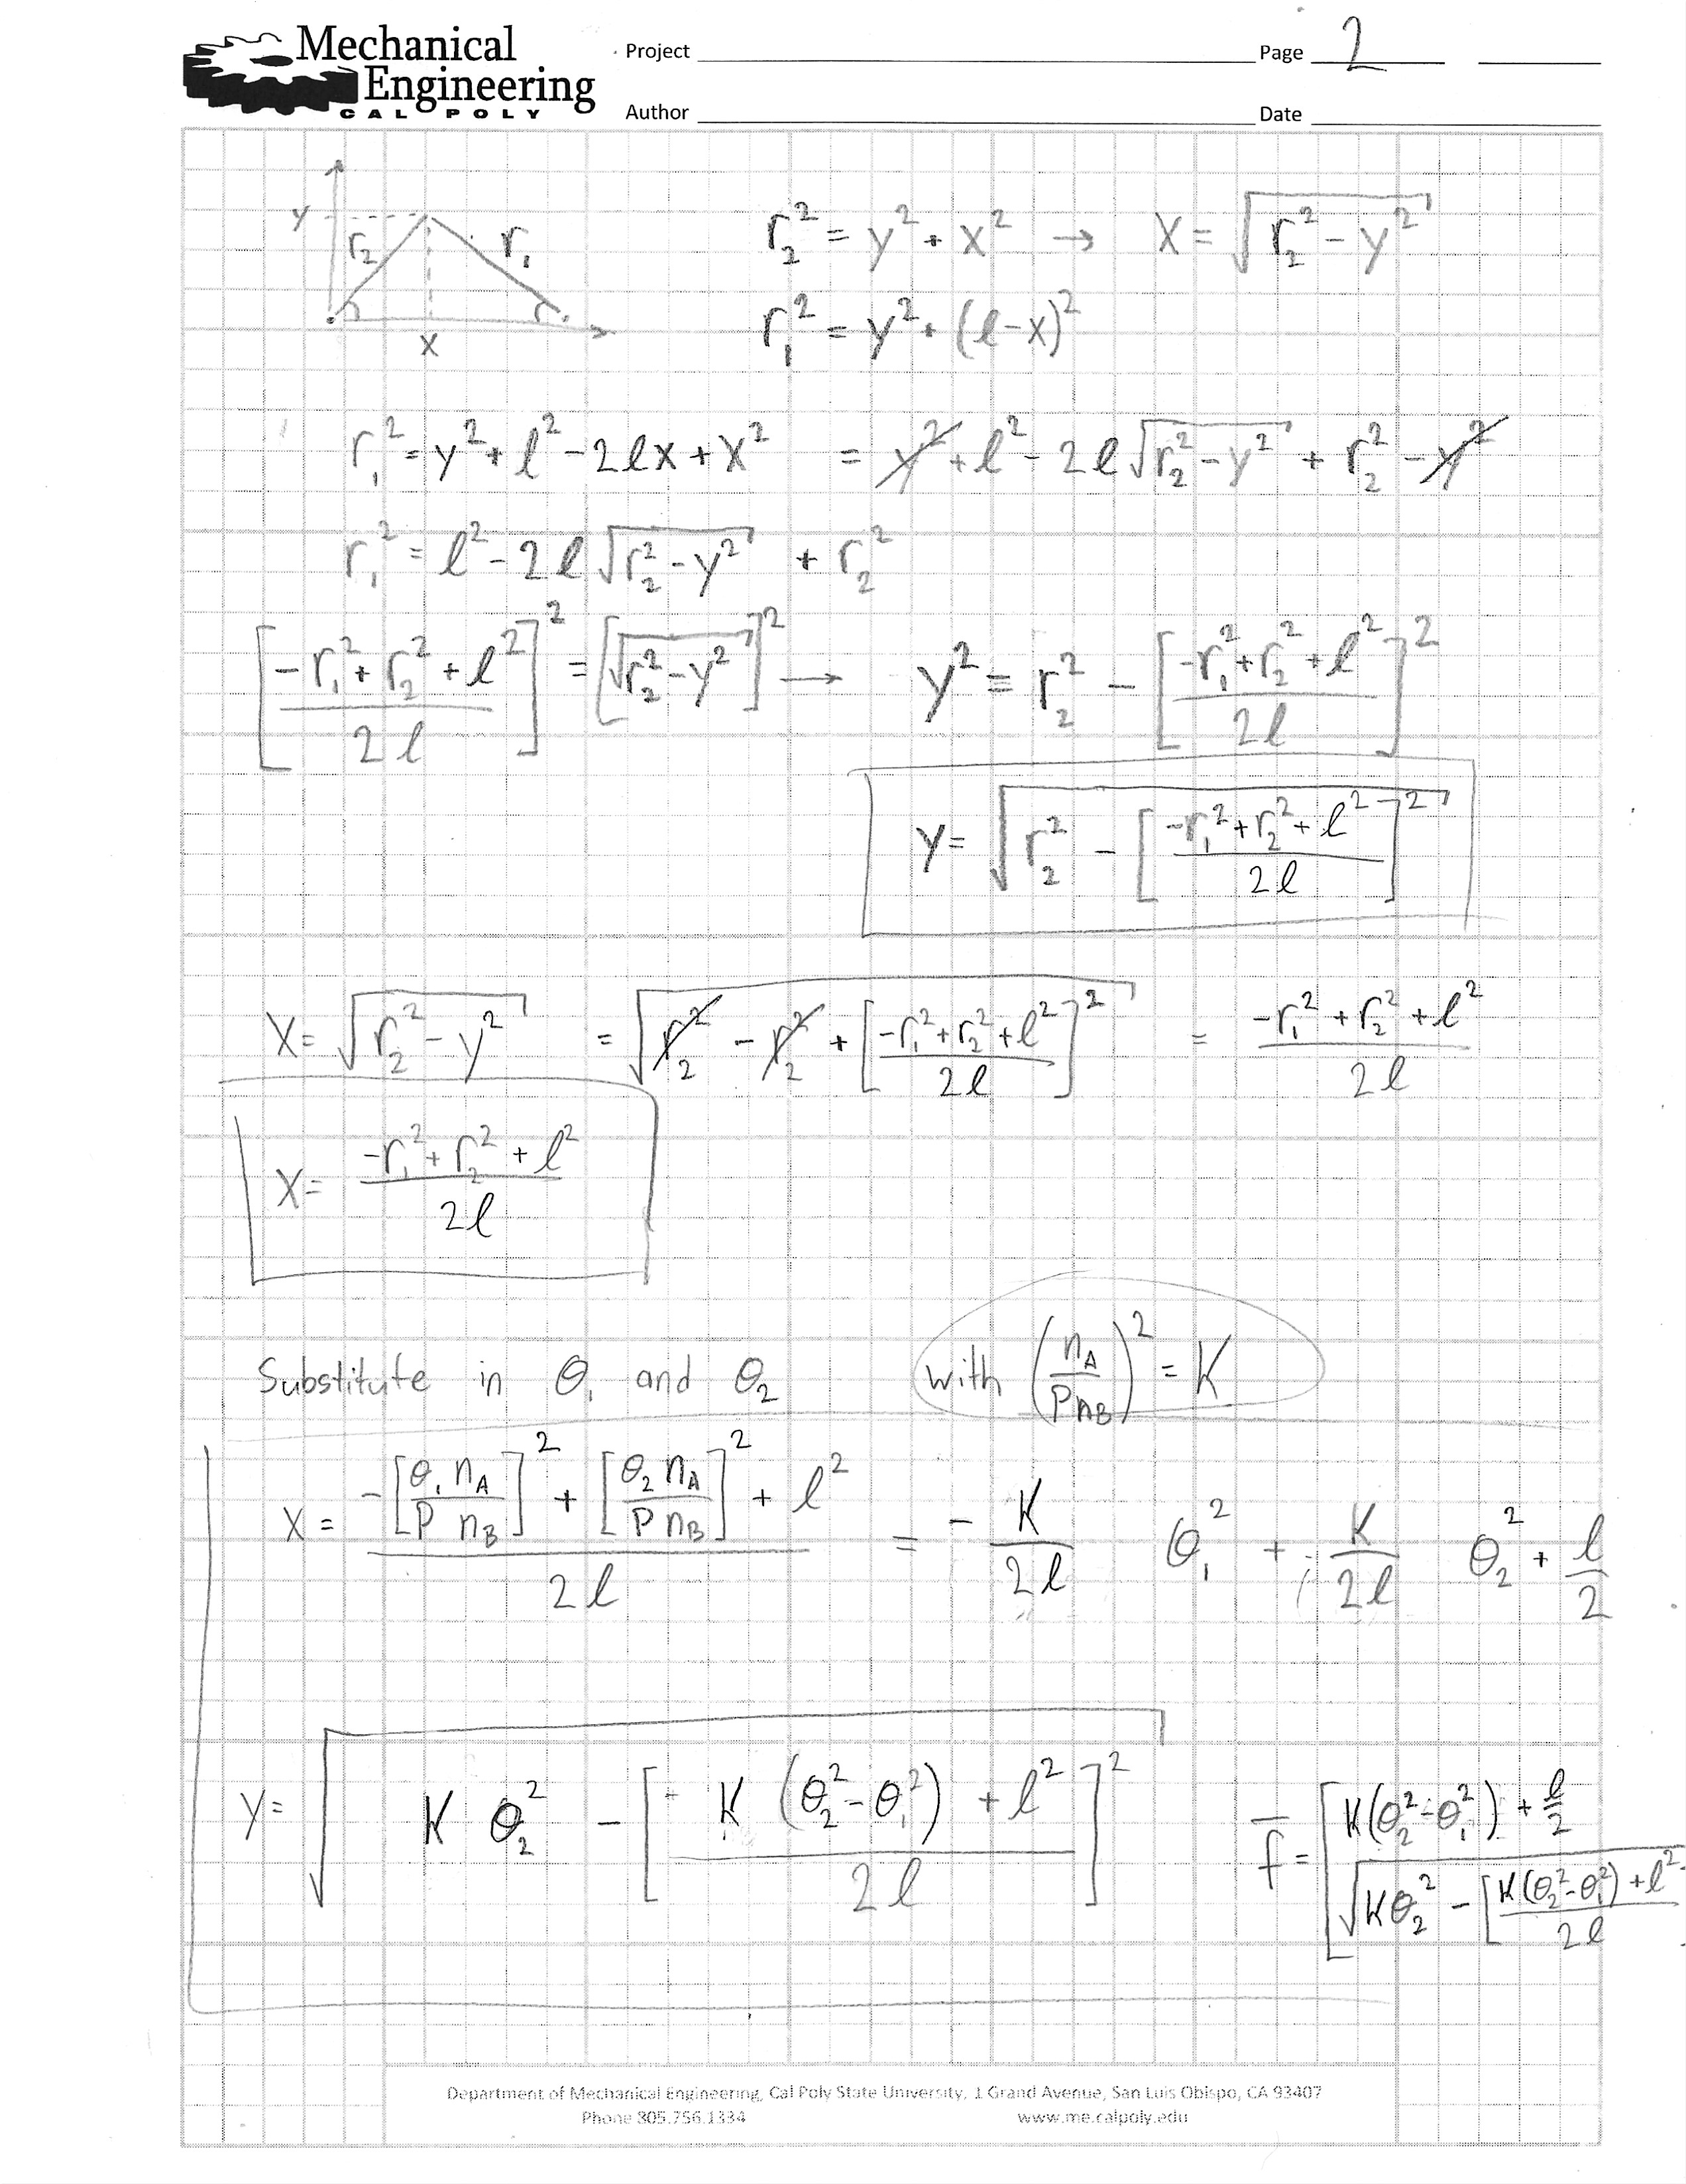 Mechanical Engineering
CAL POLY
Project
Page 2
Author
Date
y r₂ r₁
x
r₂² = y² + x² → x = √(r₂² - y²)
r₁² = y² + (l-x)²
r₁² = y² + l² - 2lx + x² = y² + l² - 2l√(r₂² - y²) + r₂² - y²
r₁² = l² - 2l√(r₂² - y²) + r₂²
[(-r₁² + r₂² + l²)/2l]² = [√(r₂² - y²)]² → y² = r₂² - [(-r₁² + r₂² + l²)/2l]²
y = √(r₂² - [(-r₁² + r₂² + l²)/2l]²)
x = √(r₂² - y²) = √(r₂² - r₂² + [(-r₁² + r₂² + l²)/2l]²) = (-r₁² + r₂² + l²)/2l
x = (-r₁² + r₂² + l²)/2l
Substitute in θ₁ and θ₂ with (n_A/(P n_B))² = K
x = (-[θ₁ n_A/(P n_B)]² + [θ₂ n_A/(P n_B)]² + l²)/2l = -K/2l θ₁² + K/2l θ₂² + l/2
y = √(K θ₂² - [(K(θ₂² - θ₁²) + l²)/2l]²)
f̄ = [K(θ₂² - θ₁²) + l/2
√(Kθ₂² - [(K(θ₂² - θ₁²) + l²)/2l
Department of Mechanical Engineering, Cal Poly State University, 1 Grand Avenue, San Luis Obispo, CA 93407
Phone 805.756.1334 www.me.calpoly.edu